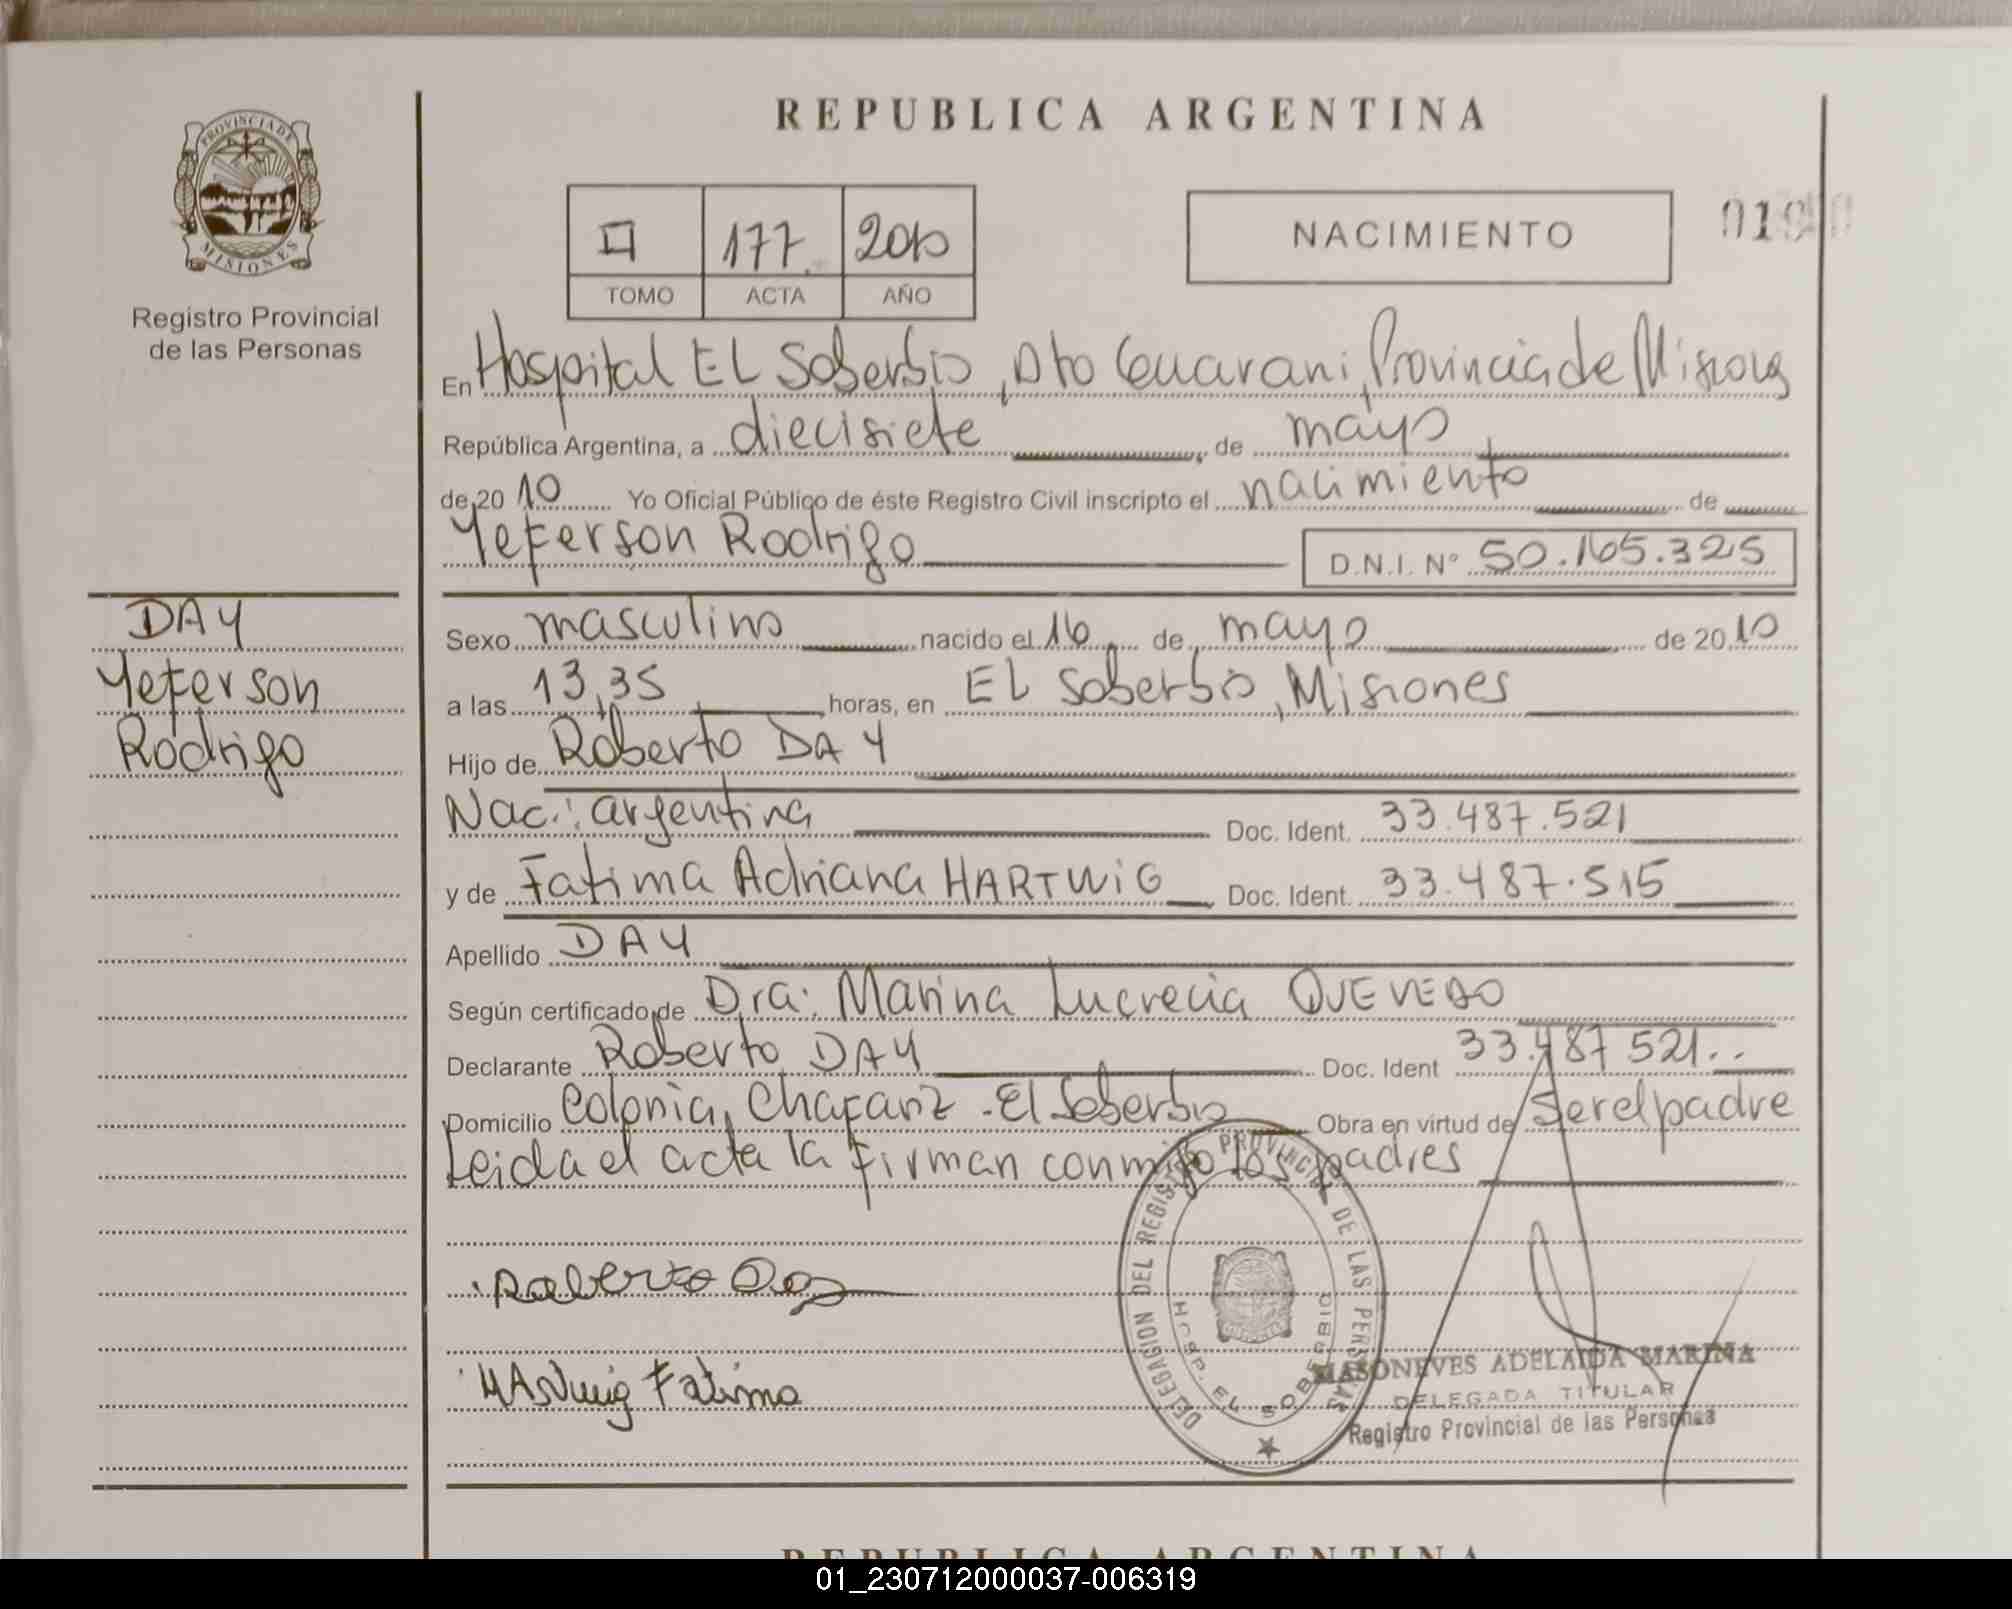 REPUBLICA ARGENTINA
PROVINCIA DE MISIONES
Registro Provincial
de las Personas
II 177 2010
TOMO ACTA AÑO
NACIMIENTO
En Hospital EL Soberbio, Dto Guarani, Provincia de Misiones
República Argentina, a diecisiete, de mayo
de 2010 Yo Oficial Público de éste Registro Civil inscripto el nacimiento de
Yeferson Rodrigo D.N.I. Nº 50.165.325
DAY
Yeferson
Rodrigo
Sexo masculino nacido el 16 de mayo de 2010
a las 13,35 horas, en EL Soberbio, Misiones
Hijo de Roberto DAY
Nac.: argentina Doc. Ident. 33.487.521
y de Fatima Adriana HARTWIG Doc. Ident. 33.487.515
Apellido DAY
Según certificado de Dra: Marina Lucrecia QUEVEDO
Declarante Roberto DAY Doc. Ident 33.487 521..
Domicilio Colonia, Chafariz - El Soberbio Obra en virtud de Ser el padre
Leida el acta la firman conmigo los padres
DELEGACION DEL REGISTRO PROVINCIAL DE LAS PERSONAS
HOSP. EL SOBERBIO
Roberto Day
Fatima
MASONEVES ADELAIDA MARINA
DELEGADA TITULAR
Registro Provincial de las Personas
REPUBLICA ARGENTINA
01_230712000037-006319